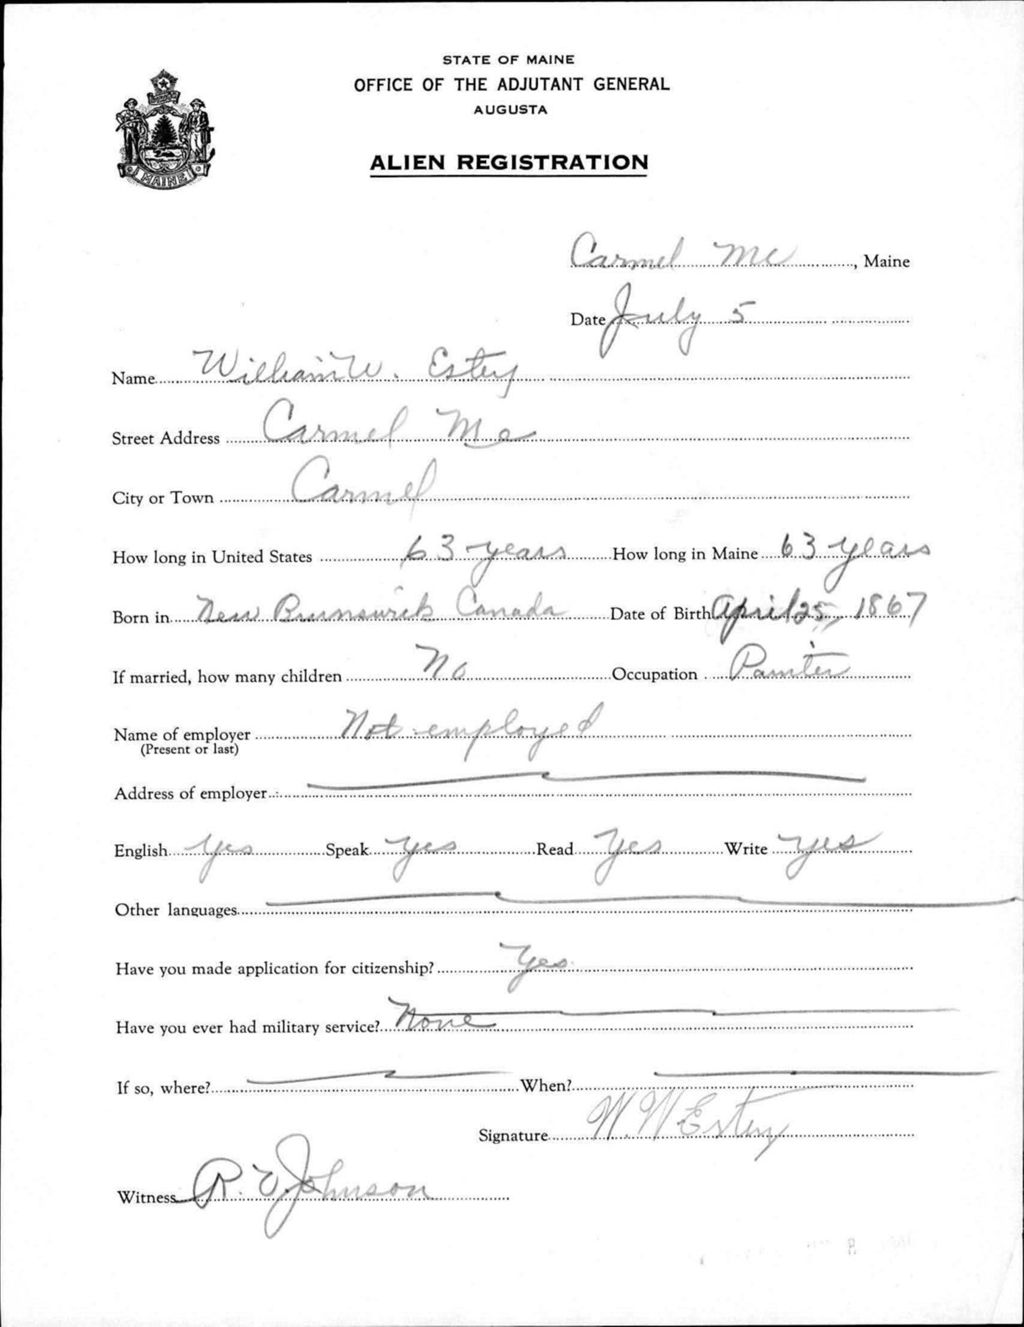 STATE OF MAINE
OFFICE OF THE ADJUTANT GENERAL
AUGUSTA
ALIEN REGISTRATION
MAINE
Carmel Me, Maine
Date July 5
Name William W. Estey
Street Address Carmel Me
City or Town Carmel
How long in United States 63 years How long in Maine 63 years
Born in New Burnswick Canada Date of Birth April 25, 1867
If married, how many children No Occupation Painter
Name of employer Not employed
(Present or last)
Address of employer
English yes Speak yes Read Yes Write yes
Other languages
Have you made application for citizenship? Yes
Have you ever had military service? None
If so, where? When?
Signature W. W Estey
Witness R. E Johnson